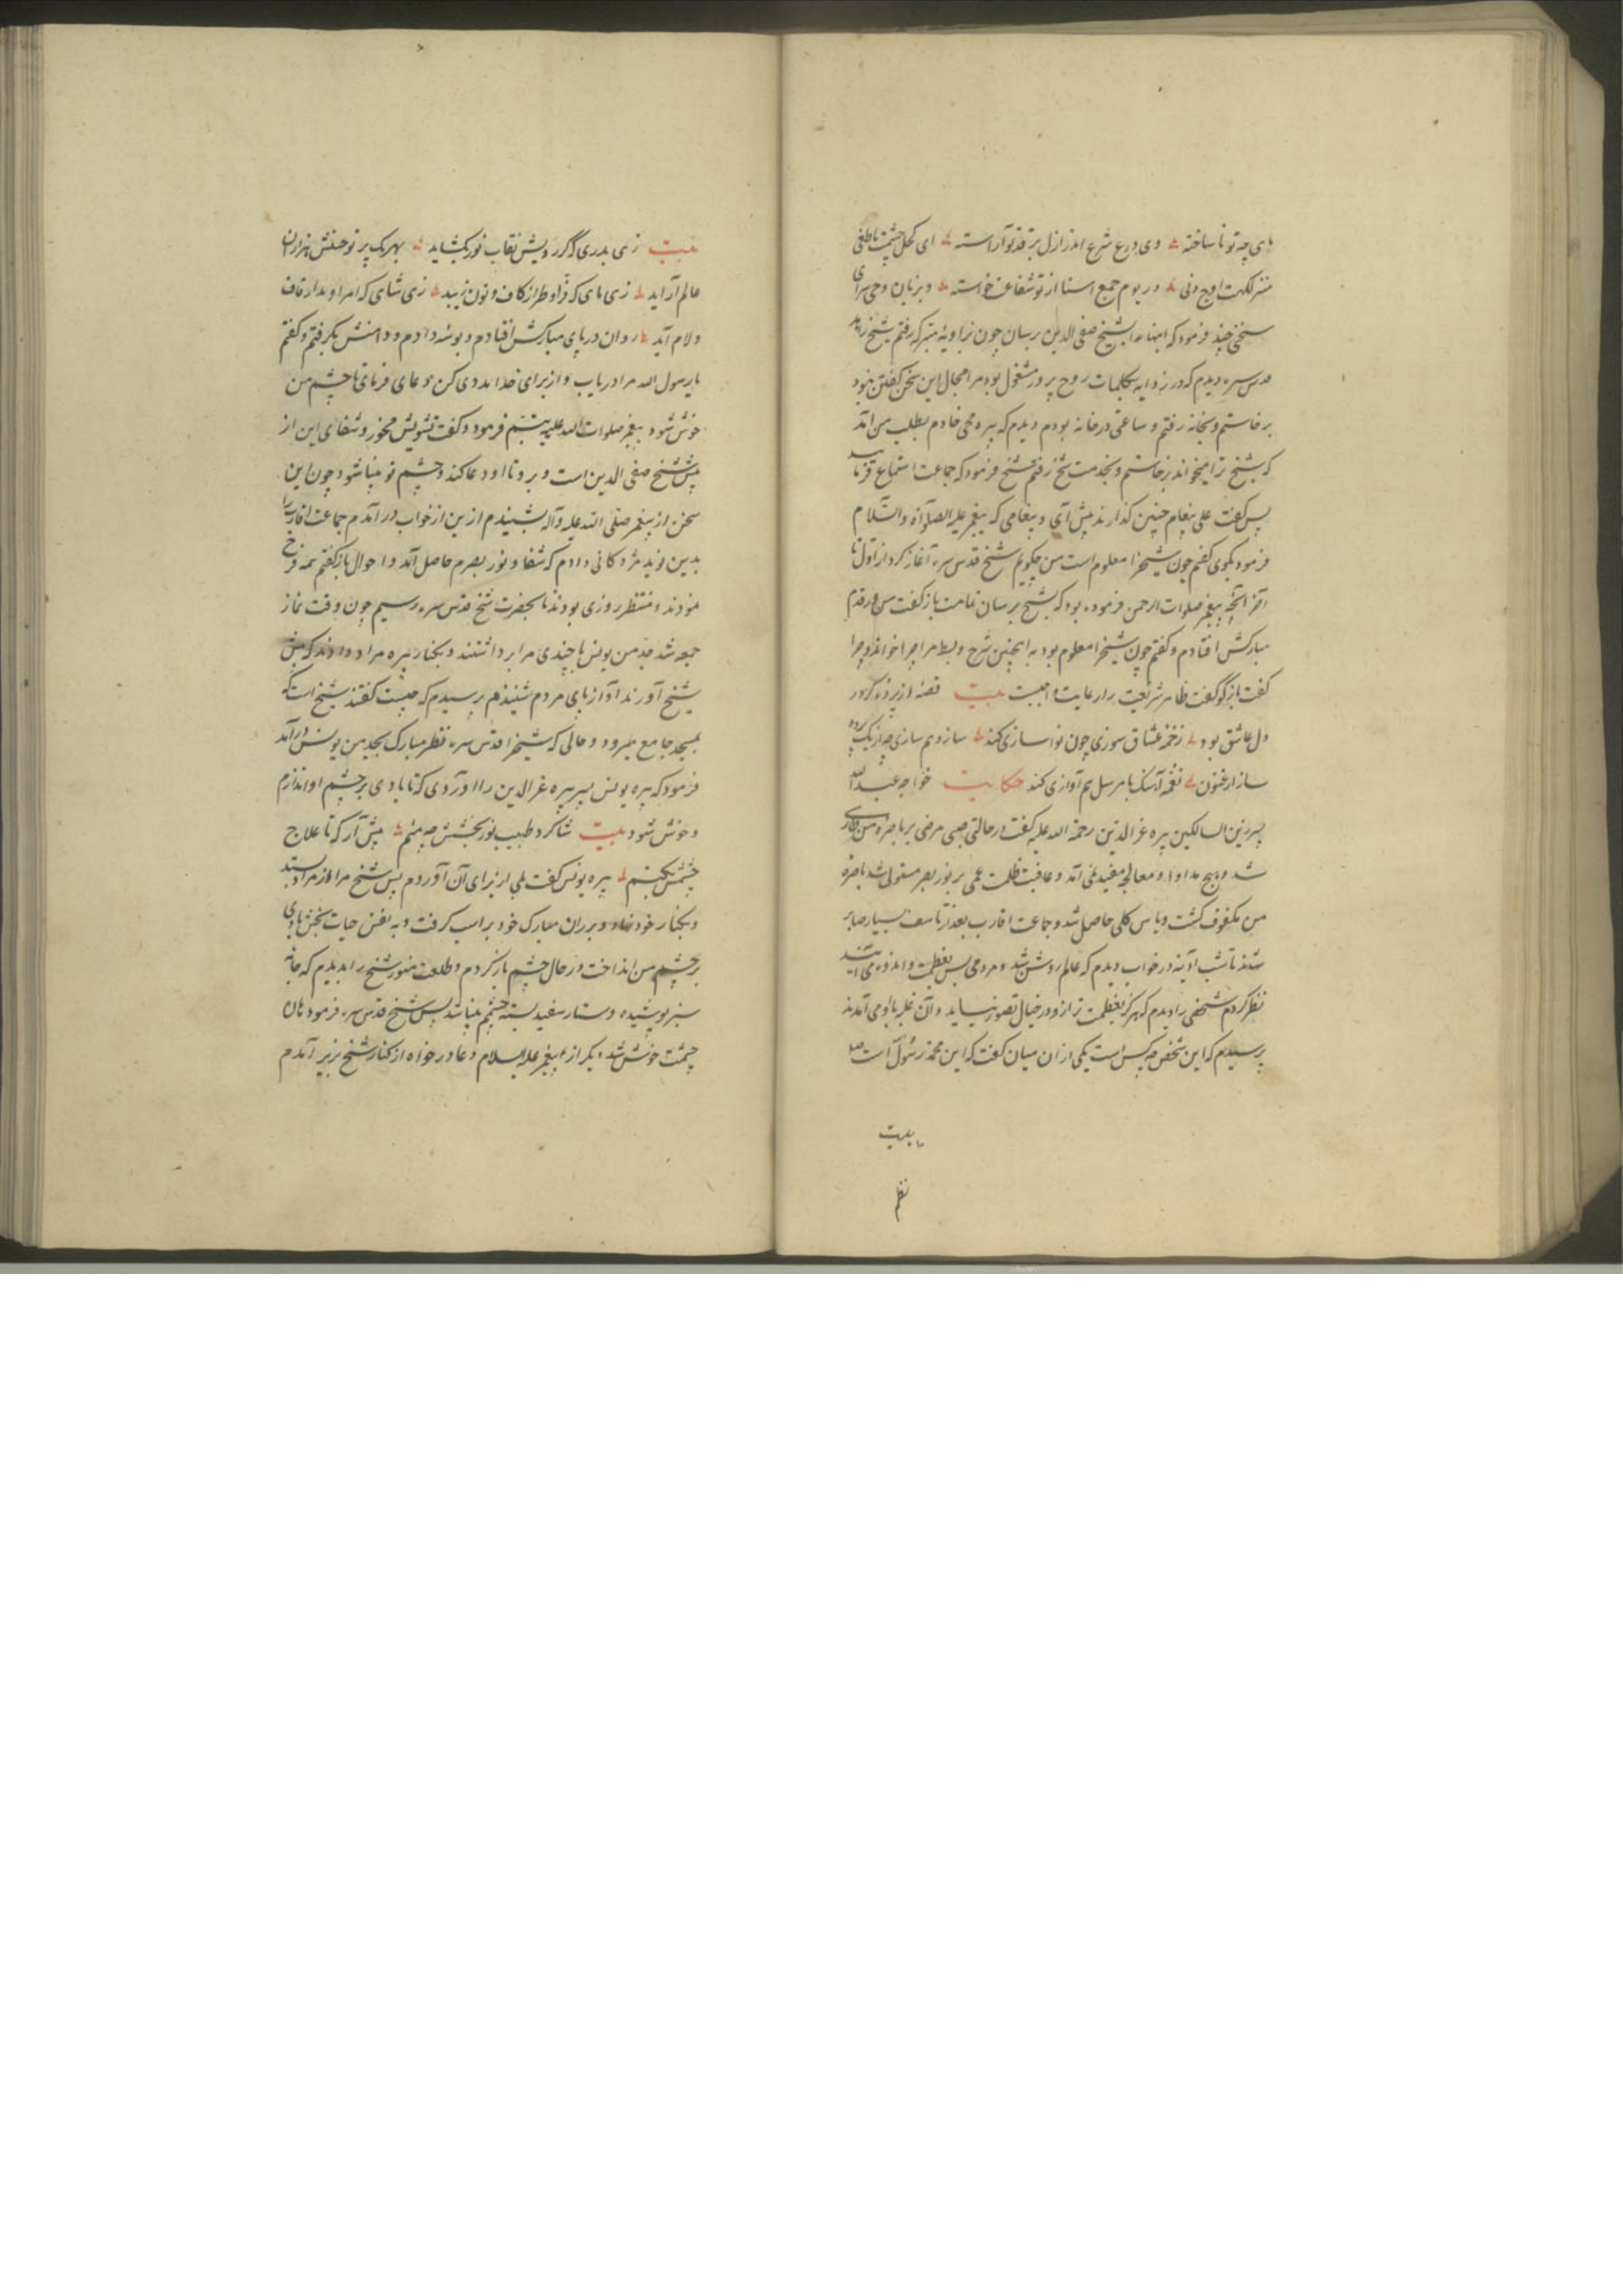 ای چه تو نا ساخته وی درع شرع اندر ازل بر قد تو آراسته ای کحل چشمت ماطغی
منزلگهت اوج دنی در یوم جمع اسنا از تو شفاعت خواسته و بزبان وحی سرای
سخنی چند فرمود که اینها را بشیخ صفی الدین برسان چون بزاویهٔ متبرکه رفتم شیخ را
قدس سره دیدم که در زاویه بکلمات روح پرور مشغول بود مرا مجال این سخن گفتن نبود
برخاستم و بخانه رفتم و ساعتی در خانه بودم دیدم که پیره محی خادم بطلب من آمد
که شیخ ترا میخواند برخاستم و بخدمت شیخ رفتم شیخ فرمود که جماعت استماع
پس گفت علی پیغام چنین گذارند پیش آی و پیغامی که پیغمبر علیه الصلوة والسلام
فرمود بگوی گفتم چون شیخرا معلوم است من چگویم شیخ قدس سره آغاز کرد از اول تا
آخر آنچه پیغمبر صلوات الرحمن فرموده بود که بشیخ برسان تمامت باز گفت من در قدم
مبارکش افتادم و گفتم چون شیخرا معلوم بود به اینچنین شرح و بسط مرا چرا خواند و چرا
گفت بازگو گفت ظاهر شریعت را رعایت واجبست بیت قصه از پرده که در
دل عاشق بود زخمهٔ عشاق سوزی چون نوا سازی کند ساز و هم سازی چه از یک پرده
ساز ارغنون نغمهٔ آهنگ با مرسل هم آوازی کند حکایت خواجه عبدالله
پسر زین السالکین پیره عز الدین رحمة الله علیه گفت در حالتی صبی مرضی بر باصرهٔ من طاری
شد و هیچ مداوا و معالجه مفید نمی آمد و عاقبت ظلمت عمی بر نور بصر مستولی شد باصرهٔ
من مکفوف گشت و یاس کلی حاصل شد و جماعت اقارب بعد از تاسف بسیار صابر
شدند تا شب آدینه در خواب دیدم که عالم روشن شد و مردمی بس بعظمت و اندوه می آیند
نظر کردم شخصی را دیدم که هرگز بعظمت تر ازو در خیال تصور نیاید و آن غلبه با او می آمدند
پرسیدم که این شخص چه کس است یکی از آن میان گفت که این محمد رسول الله است
بیت
نظم
بیت زهی بدری که گر رویش نقاب نور بگشاید بهر یک پرتو حسنش هزاران
عالم آراید زهی مای که فراو طراز کاف و نون زیبد زهی شاهی که امر او بدار قاف
و لام آید روان در پای مبارکش افتادم و بوسه دادم و دامنش بگرفتم و گفتم
یا رسول الله مرا دریاب و از برای خدا مددی کن و دعای فرمای تا چشم من
خوش شود پیغمبر صلوات الله علیه تبسم فرمود و گفت تشویش مخور و شفای این از
پیش شیخ صفی الدین است و برو تا او دعا کند و چشم تو بینا شود چون این
سخن از پیغمبر صلی الله علیه وآله بشنیدم ازین از خواب درآمدم جماعت اقارب را
بدین نوید مژدگانی دادم که شفا و نور بصرم حاصل آمد و احوال باز گفتم همه فرح
نمودند و منتظر روزی بودند تا بحضرت شیخ قدس سره رسیم چون وقت نماز
جمعه شد جد من یونس با چندی مرا برداشتند و بکنار پیره مراد دادند که پیش
شیخ آورند آواز پای مردم شنیدم پرسیدم که چیست گفتند شیخ است که
بمسجد جامع میرود و حالی که شیخرا قدس سره نظر مبارک بجد من یونس درآمد
فرمود که پیره یونس پسر پیره عز الدین را آوردی که تا بادی بر چشم او اندازم
و خوش شود بیت شاگرد طبیب نور بخشش چه منم پیش آر که تا علاج
چشمش بکنم پیره یونس گفت بلی از برای آن آوردم پس شیخ مرا از مراد بستد
و بکنار خود نهاد و بر ران مبارک خود بر اسب گرفت و به نفس حیات بخش بادی
بر چشم من انداخت در حال چشم باز کردم و طلعت منور شیخ را بدیدم که جامهٔ
سبز پوشیده و دستار سفید بسته چشمم بینا شد پس شیخ قدس سره فرمود هان
چشمت خوش شد دیگر از پیغمبر علیه السلام دعا درخواه از کنار شیخ بزیر آمدم